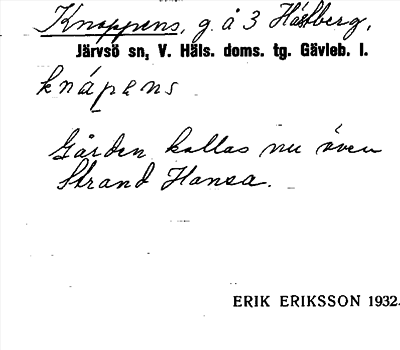 Knoppens, g. å 3 Håstberg,
Järvsö sn, V. Häls. doms. tg. Gävleb. l.
knápens
Gården kallas nu även
Strand Hansa.
ERIK ERIKSSON 1932.